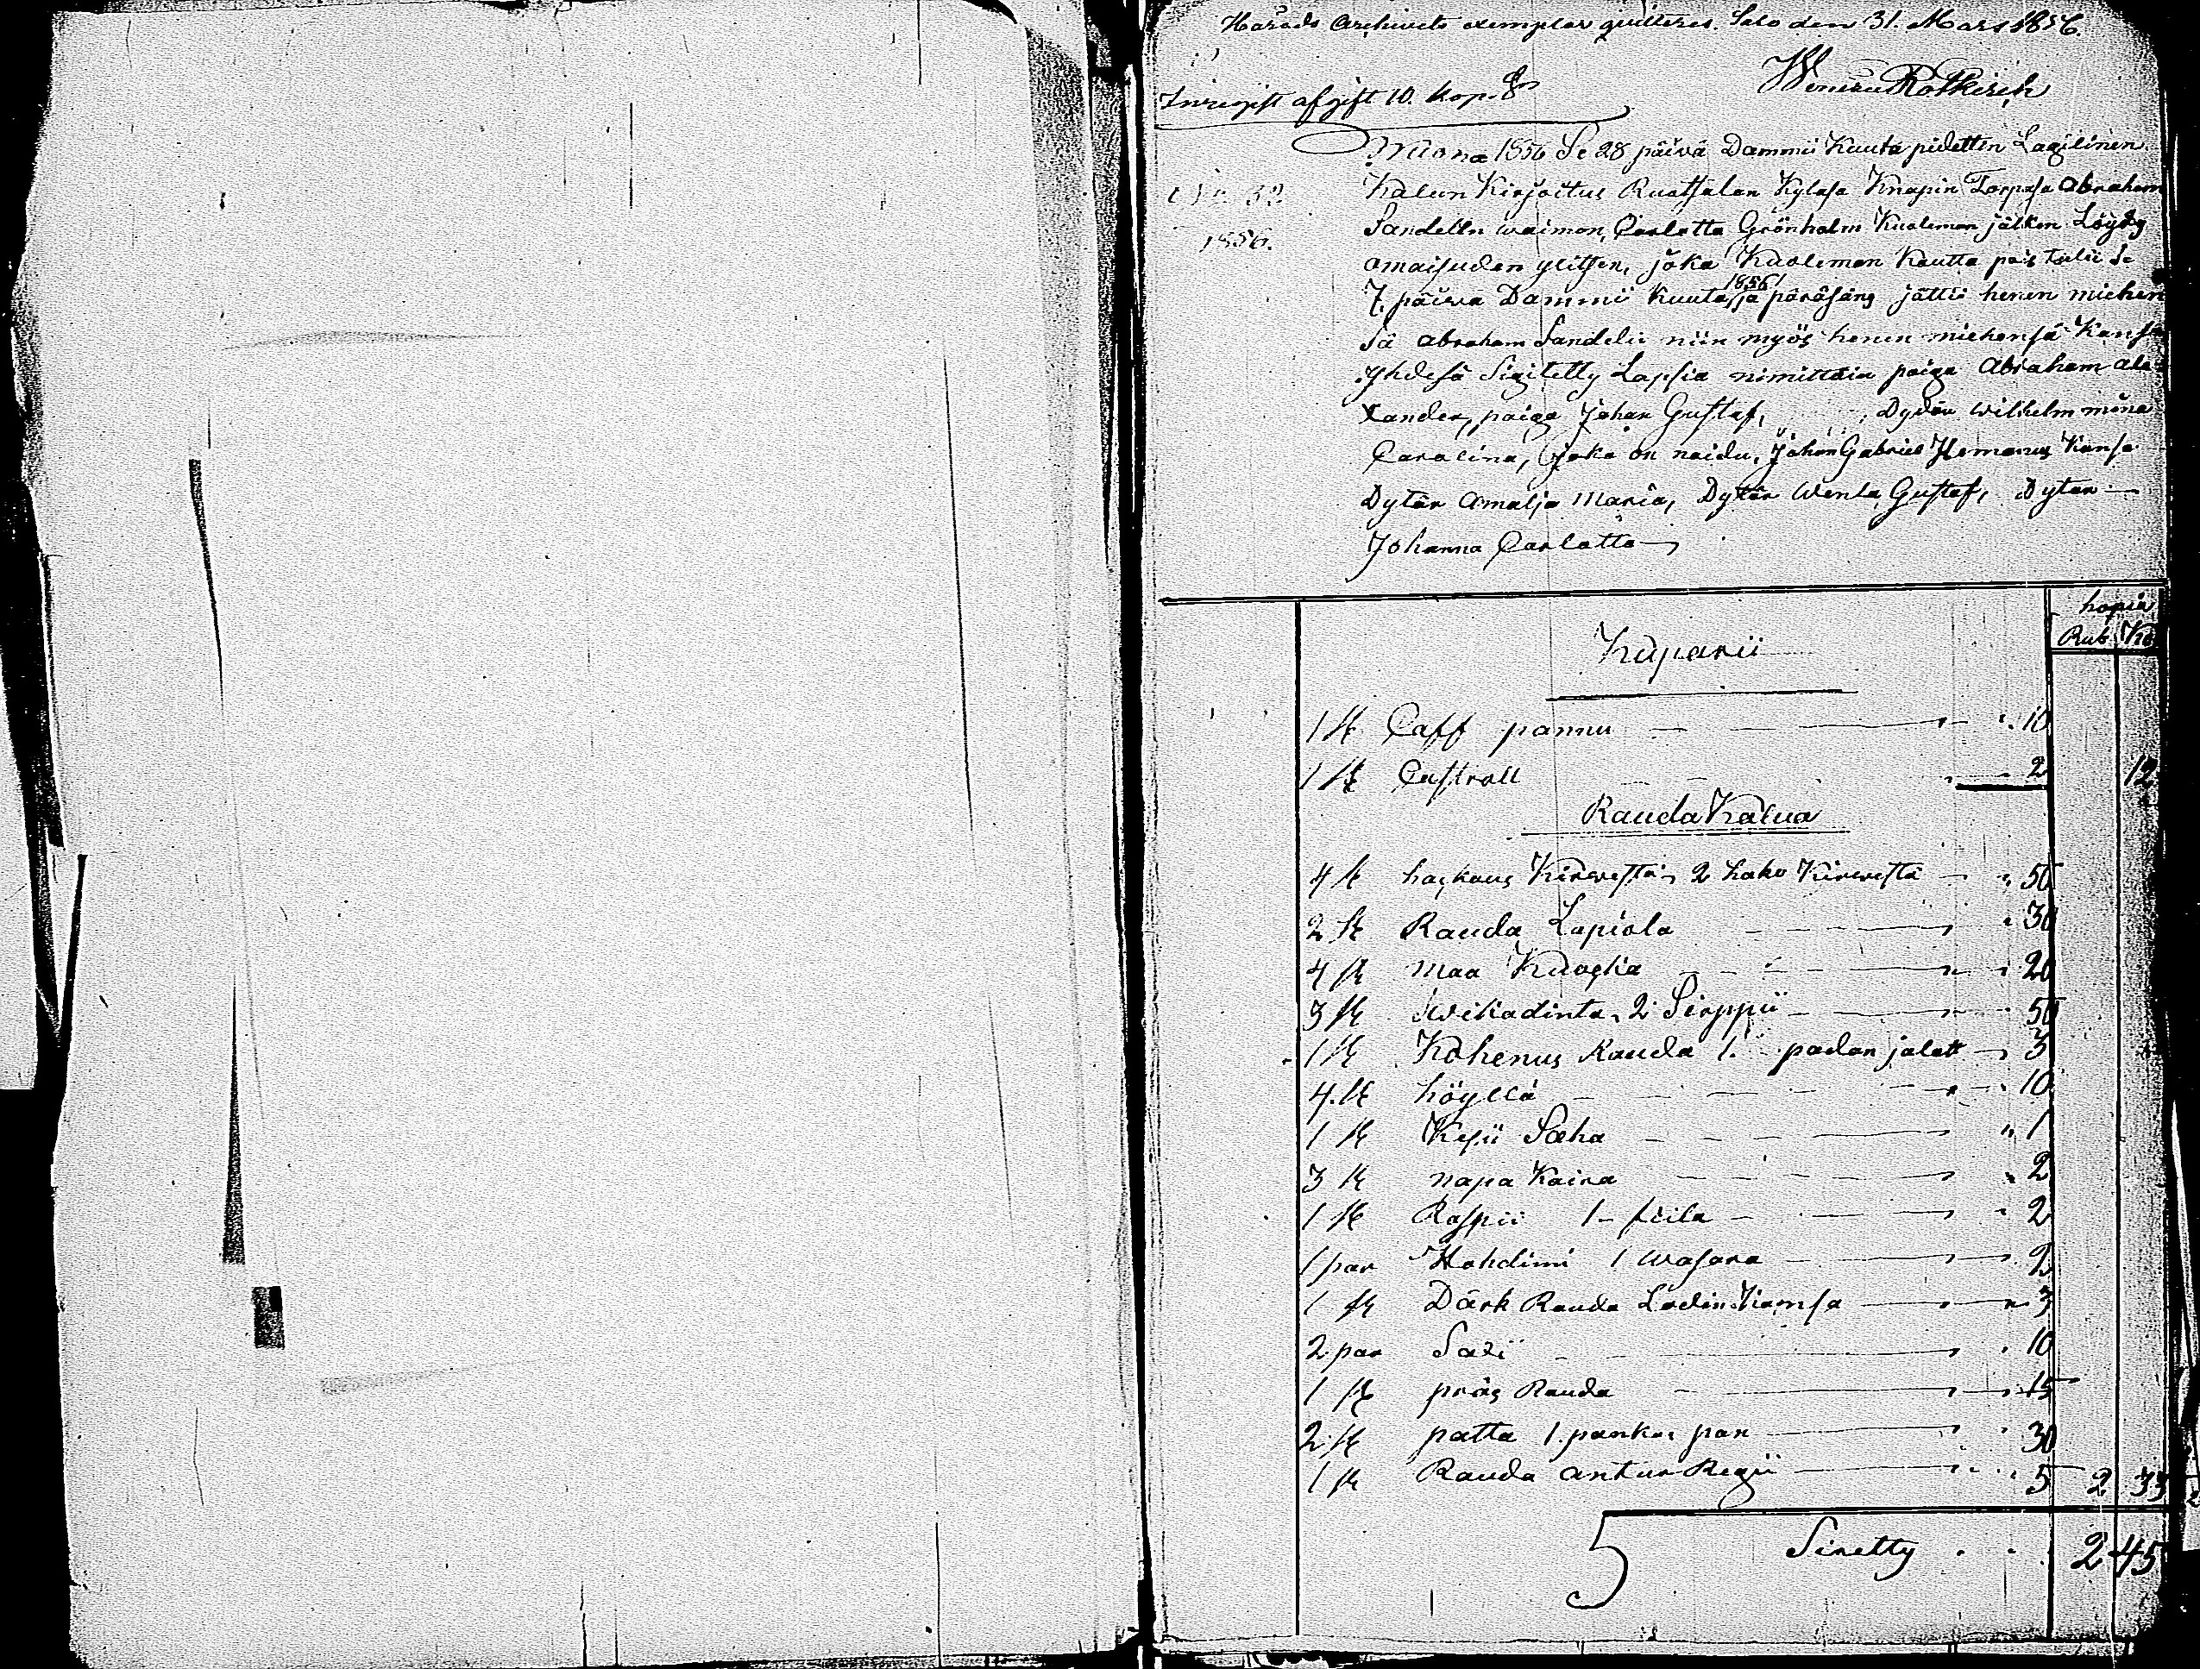 Härads Archivets exemplar qvitteres. Salo den 31. Mars 1856.
Inregist afgift 10. kop. Sr
Wuona 1856 Se 28 päivä Dammii Kuuta pidettin Lagilinen
No. 32
1856.
Kalun Kirjoitus Ruotsalan Kylasa Knapin Torpasa Abraham
Sandelln waimon, Carlotta Grönholm Kuoleman jälken Löydy
omaisuden ylitsen, joka Kuoleman Kautta pois tulii Se
7. päivä Dammii Kuuta 1856 ja peräsäns jättii henen miehen
sä Abraham Sandelii niin myös henen miehensä Kansa
Yhdesä Sigitetty Lapsia nimittäin poiga Abraham Ale-
xander, poiga Johan Gustaf, Dytär Wilhelmmina
Carolina, joka on naidu, Johan Gabriel Hemanus Kansa
Dytär Amalja Maria, Dytär Wenla Gustaf, Dytär
Johanna Carlotta
hopia
Rub Ko
Kuparii
1 st Caff pannu 10
1 st Castroll 2 12
Rauda Kalua
4 st haskaus Kirwestä, 2 hako Kirwestä 50
2 st Rauda Lapiota 30
4 st maa Kuoskia 20
3 st Wikadinta, 2 Sirppii 50
1 st Kohenus Rauda 1. padan jalatt 3
4. st höyllä 10
1 st Kesii Saha 1
3 st napa Kaira 2
1 st Raspii 1 fiila 2
1 par Hohdimi 1 Wasara 2
1 st Därk Rauda Ladin 3
2 par Saxi 10
1 st präs Rauda 15
2 st patta 1. pankas pan 30
1 st Rauda antur Regii 5 2 33
5 Siretty 2 45